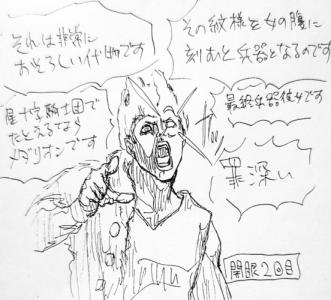 その紋様を女の腹に
刻むと兵器となるのです
それは非常に
おそろしい代物です
最終兵器彼女です
星十字騎士団で
たとえるなら
メダリオンです
罪深い
開眼2回目